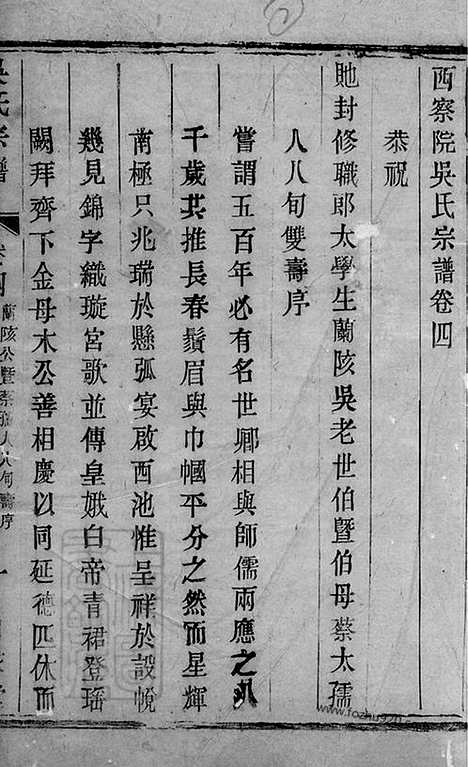 西察院吳氏宗譜卷四
恭祝
貤封修職郎太學生蘭陔吳老世伯暨伯母蔡太孺
人八旬雙壽序
嘗謂五百年必有名世卿相與師儒兩應之八
千歲共推長春鬚眉與巾幗平分之然而星輝
南極只兆瑞於懸弧宴啟西池惟呈祥於設帨
幾見錦字織璇宮歌並傳皇娥白帝青裙登瑤
闕拜齊下金母木公善相慶以同延德匹休而
吳氏宗譜
蘭陔公暨蔡孺人八旬壽序
一
www.fozhu920